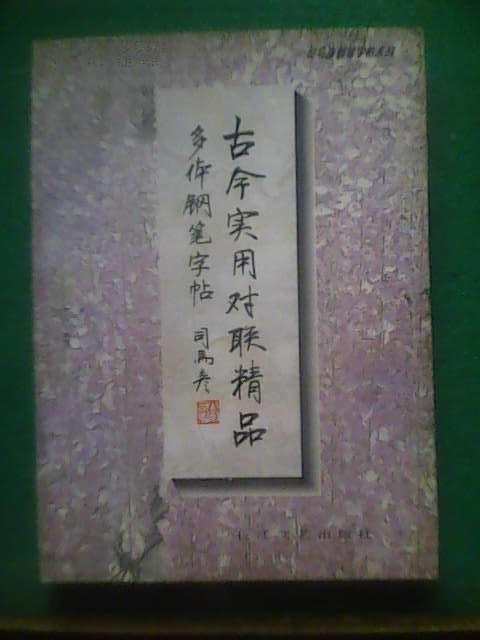 古今实用对联精品
多体钢笔字帖
司马彦
长江文艺出版社